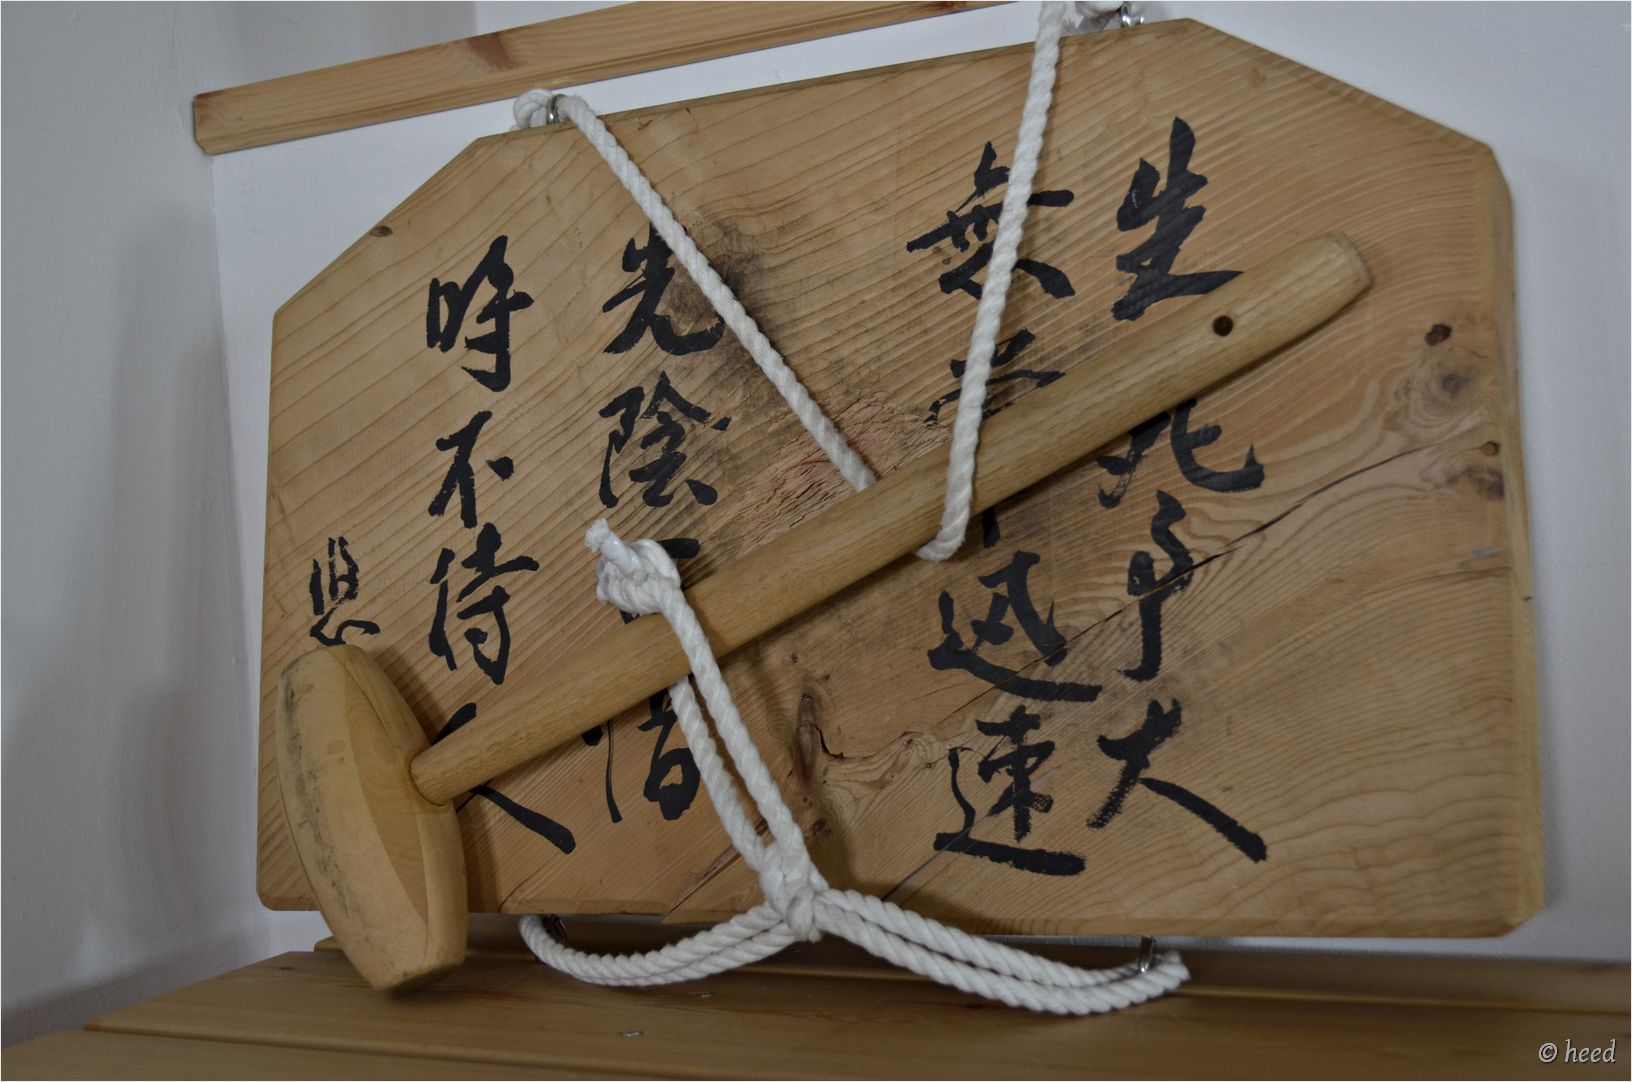 生死事大
無常迅速
光陰可惜
時不待人
© heed